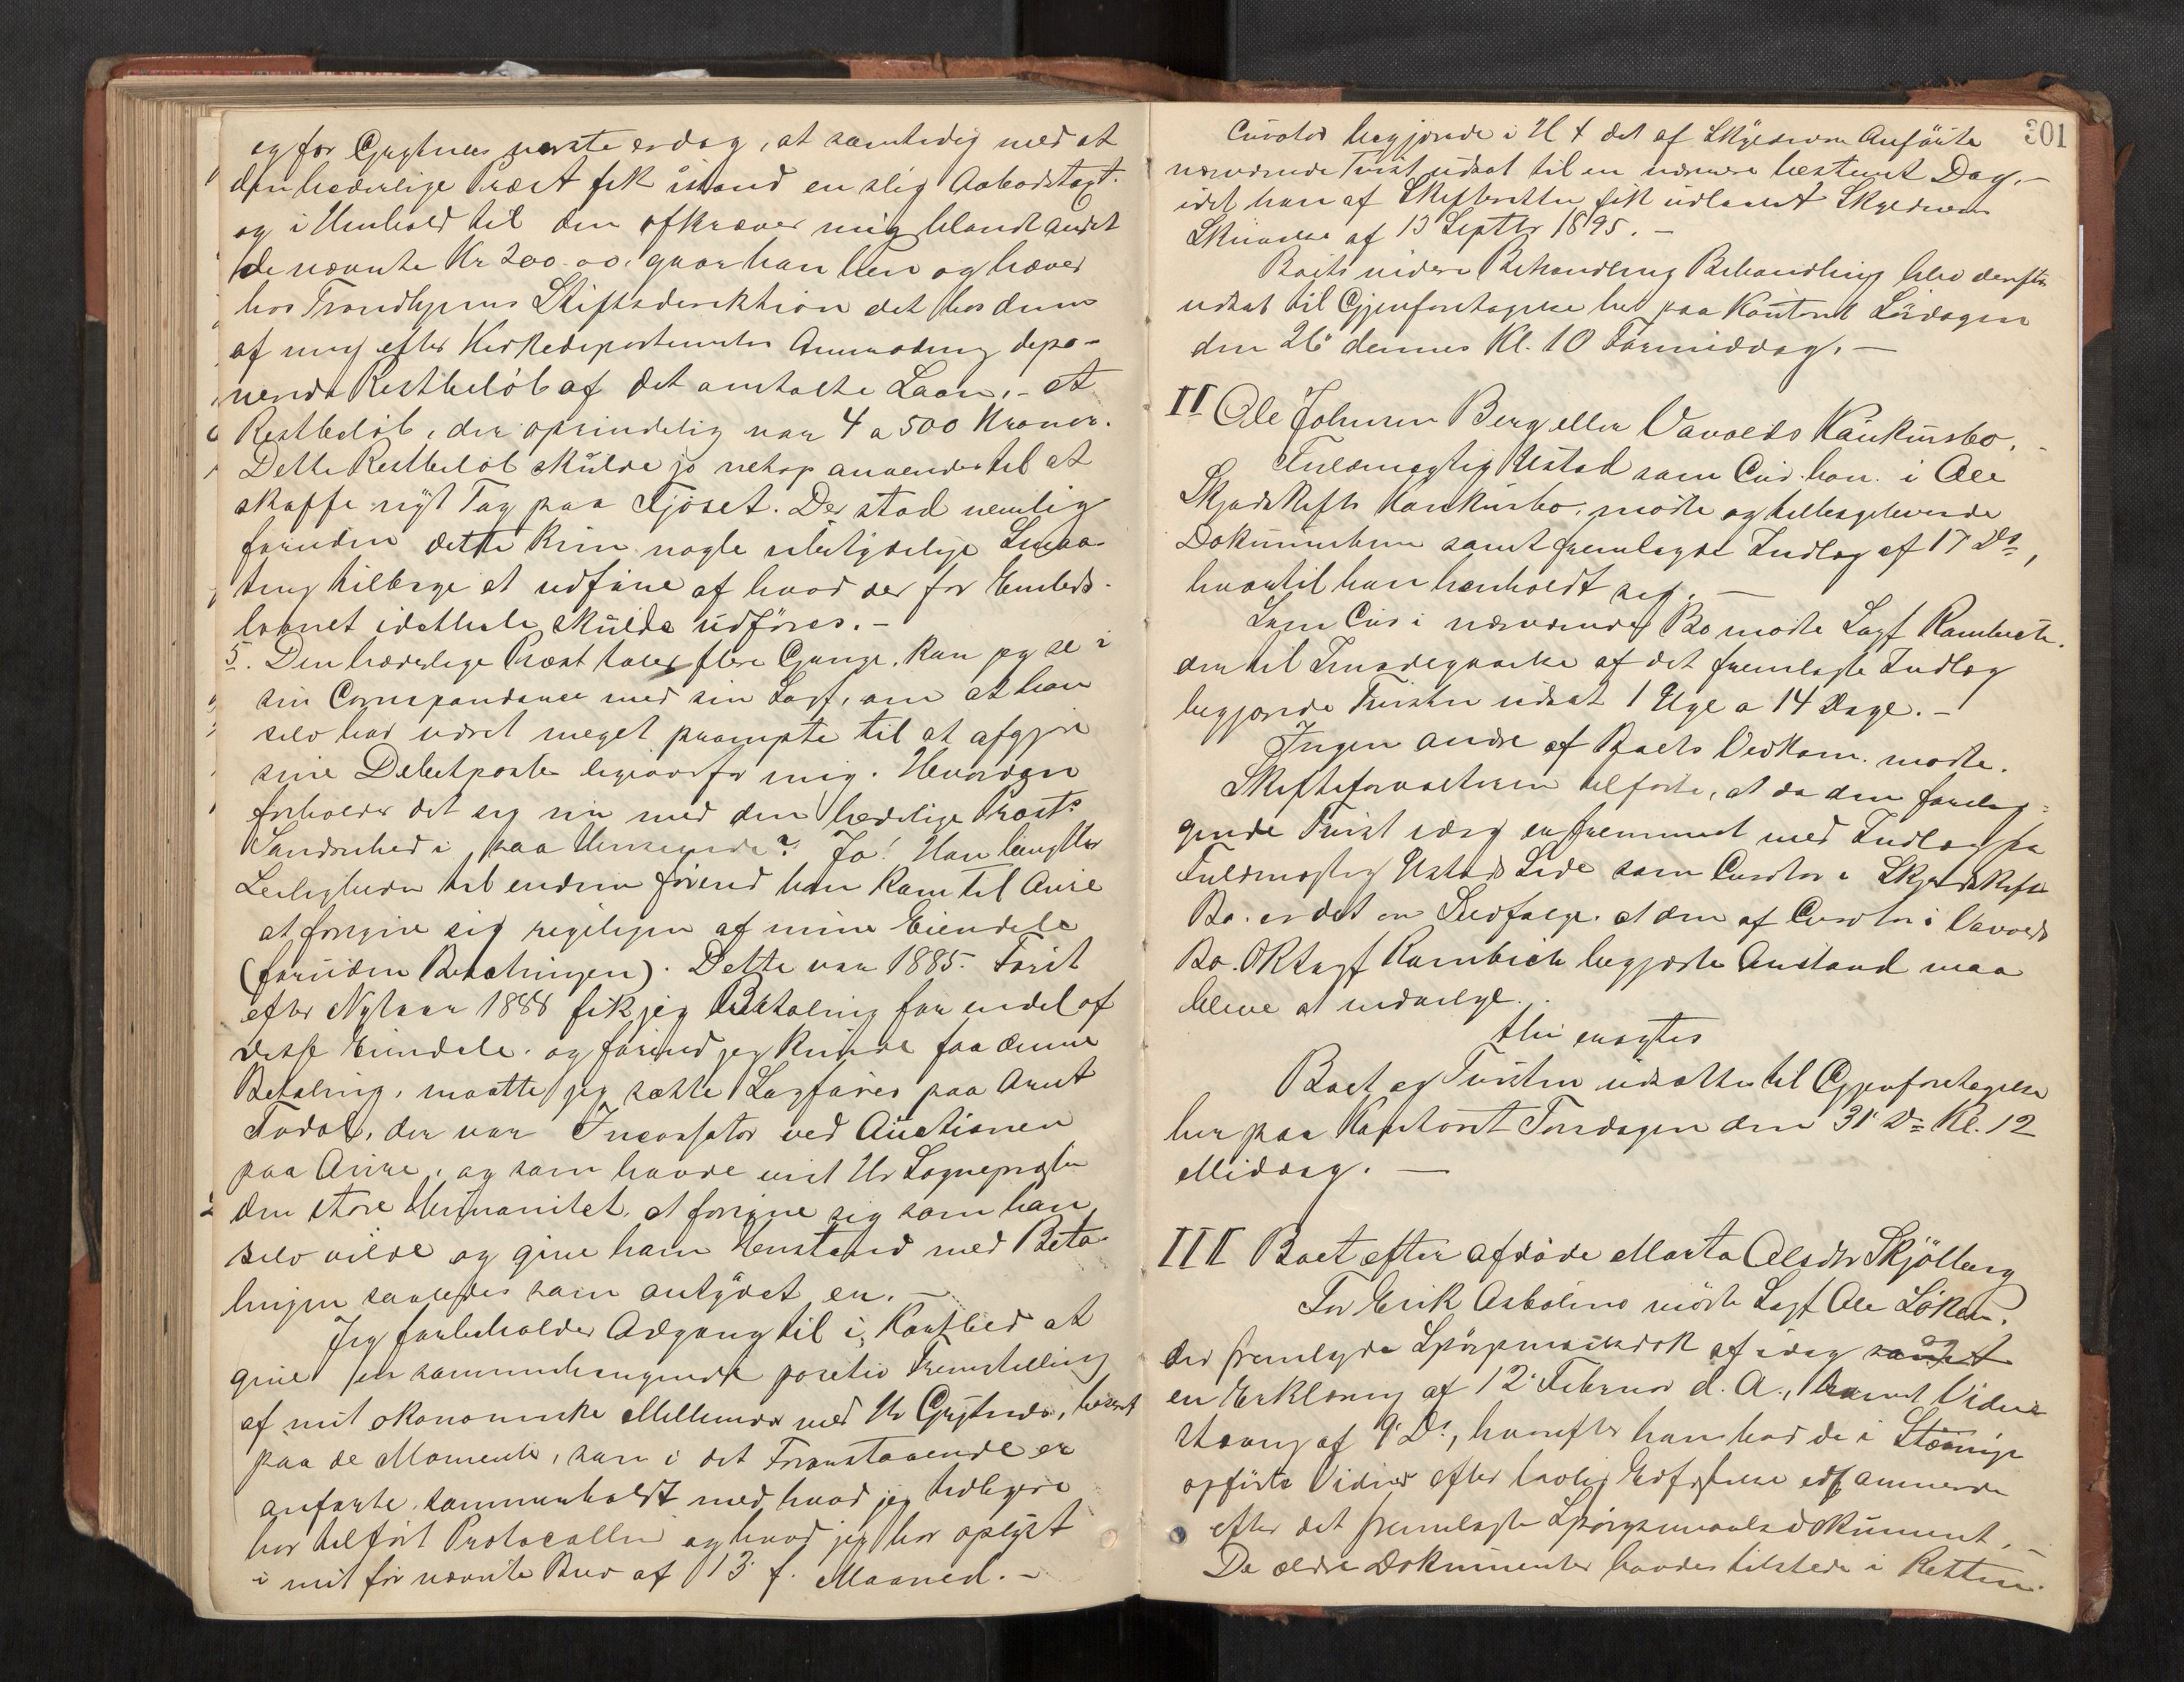 og for Grytnes næste erdag, at samtidig med at
den hæderlige Præst fik istand en slig Aabodstaxt
og i Henhold til den afkræver mig blandt andet
de nævnte Kr 200.00. gaar han hen og hæver
hos Trondhjems Stiftsdirektion det hos dem
af mig efter Kirkedepartementets Anmodning depo-
nerede Restbeløb af det omtalte Laan, - et
Restbeløb, der oprindelig var 4 a 500 Kroner.
Dette Restbeløb skulde jo netop anvendes til at
skaffe nyt Tag paa Fjøset. Der stod nemlig
foruden dette kun nogle ubetydelige Smaa-
ting tilbage at udføre af hvad der for Embeds-
laanet idethele skulde udføres. -
5. Den hæderlige Præst taler flere Gange, kan jeg se i
sin Correspondance med sin Sagf, om at han
selv har været meget prompte til at afgjøre
sine Debetposter ligeoverfor mig. Hvordan
forholder det sig nu med den hæderlige Præsts
Sandhed i saa Henseende? Jo! Han benytter
Leiligheden til endnu førend han kom til Aure
at forsyne sig rigeligen af mine Eiendele
(foruden Besætningen). Dette var 1885. Først
efter Nytaar 1888 fik jeg Betaling for endel af
disse Eiendele. og førend jeg kunde faa denne
Betaling, maatte jeg sætte Lagføres paa Arnt
Todal, der var Incassator ved Auctionen
paa Aure, og som havde vist Hr Sognepræsten
den store Humanitet, at forsyne sig som han
selv vilde og give ham Henstand med Beta-
lingen saaledes som antydet er. -
Jeg forbeholder Adgang til i Korthed at
give en sammenhængende positiv Fremstilling
af mit økonomiske Mellemvær med Hr Grytnes, baseret
paa de Momenter, som i det Foranstaaende er
anførte, sammenholdt med hvad jeg tidligere
har tilført Protocollen og hvad jeg har oplyst
i mit før nævnte Brev af 13 f. Maaned. -
301
Curator begjærede i H t det af Skyldneren Anførte
nærværende Tvist udsat til en nærmere bestemt Dag. -
idet han af Skifteretten fik udlaant Skyldnerens
Skrivelse af 13 Septbr 1895. -
Boets videre Behandling Behandling blev derefter
udsat til Gjenforetagelse her paa Kontoret Lørdagen
den 26' dennes Kl. 10 Formiddag. -
II Ole Johnsen Berg eller Vavolds Konkursbo. -
Fuldmægtig Ustad som Cur. bon. i Ole
Skjødskifts Konkursbo. mødte og tilbageleverede
Dokumenterne samt fremlagde Indlæg af 17 Ds,
hvortil han henholdt sig. -
Som Cur i nærværende Bo mødte Sagf Rambech.
der til Imødegaaelse af det fremlagte Indlæg
begjærede Tvisten udsat 1 Uge a 14 Dage. -
Ingen andre af Boets Vedkom. mødte.
Skifteforvalteren tilførte, at da den forelig-
gende Tvist idag er fremmet med Indlæg fra
Fuldmægtig Ustads Side som Curator i Skjødskifts
Bo. er det en Selvfølge. at den af Curator i Vavolds
Bo. ORSagf Rambech begjærte Anstand maa
blive at indvilge.
Thi eragtes
Boet og Tvisten udsættes til Gjenforetagelse
her paa Kontoret Torsdagen den 31' Ds Kl. 12
Middag. -
III Boet efter afdøde Marta Olsdtr Skjølberg
For Erik Asbølmo mødte Sagf Ole Løken.
der fremlagde Spørgsmaalsdok af idag samt
en Erklæring af 12' Februar d. A., samt Vidne
stævning af 9' Ds, hvorefter han bad de i Stævningen
opførte Vidner efter lovlig Edfæstelse edf ammende
efter det fremlagte Spørgsmaalsdokument. -
De ældre Dokumenter havdes tilstede i Retten.